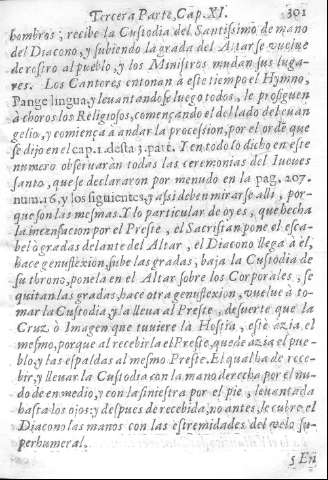 Tercera Parte, Cap. XI. 301
hombros; recibe la Custodia del Santissimo de mano
del Diacono, y subiendo la grada del Altar se vuelue
de rostro al pueblo, y los Ministros mudan sus luga-
res. Los Cantores entonan à este tiempo el Hymno,
Pange lingua, y leuantandose luego todos, le prosiguen
à choros los Religiosos, començando el del lado del euan
gelio, y comiença a andar la procession, por el ordē que
se dijo en el cap. 1. desta 3. part. Y en todo lo dicho en este
numero obseruaràn todas las ceremonias del Iueues
santo, que se declararon por menudo en la pag. 207.
num. 16. y los siguientes, y asi deben mirarse alli, por-
que son las mesmas. Y lo particular de oy es, que hecha
la incensacion por el Preste, el Sacristan pone el esca-
bel ò gradas delante del Altar, el Diacono llega à èl,
hace genuflexion, sube las gradas, baja la Custodia de
su throno, ponela en el Altar sobre los Corporales, se
quitan las gradas, hace otra genuflexion, vuelue à to-
mar la Custodia, y la lleua al Preste, de suerte que la
Cruz ò Imagen que tuuiere la Hostia, estè azia el
mesmo, porque al recebirla el Preste, quede azia el pue-
blo, y las espaldas al mesmo Preste. El qual ha de rece-
bir, y lleuar la Custodia con la mano derecha por el nu-
do de en medio, y con la siniestra por el pie, leuantada
hasta los ojos: y despues de recebida, no antes, le cubre el
Diacono las manos con las estremidades del velo su-
perhumeral.
5 En